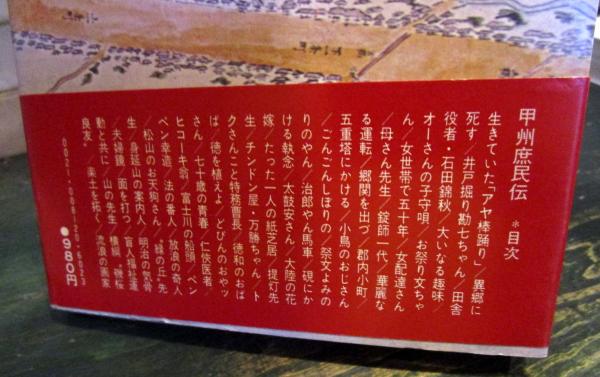 甲州庶民伝 *目次
生きていた「アヤ棒踊り」/異郷に
死す/井戸掘り勘七ちゃん/田舎
役者・石田錦秋/大いなる趣味/
オーさんの子守唄/お祭り文ちゃ
ん/女世帯で五十年/女配達さん
/母さん先生/錠師一代/華麗な
る運転/郷関を出づ/郡内小町/
五重塔にかける/小鳥のおじさん
/ごんごんしぼりの/祭文よみの
りのやん/治郎やん馬車/硯にか
ける執念/太鼓安さん/大陸の花
嫁/たった一人の紙芝居/提灯先
生/チンドン屋・万勝ちゃん/ト
クさんこと特務曹長/徳和のおば
ば/徳を植えよ/どびんのおやッ
さん/七十歳の青春/仁侠医者/
ヒコーキ翁/富士川の船頭/ペン
ペン幸造/法の番人/放浪の奇人
/松山のお天狗さん/"緑の丘"先
生/身延山の案内人/明治の気骨
/夫婦鏡/面を打つ/盲人福祉運
動と共に/山の先生/横綱・磯桜
良友/楽土を拓く/流浪の画家
0021-008120-6023
●980円